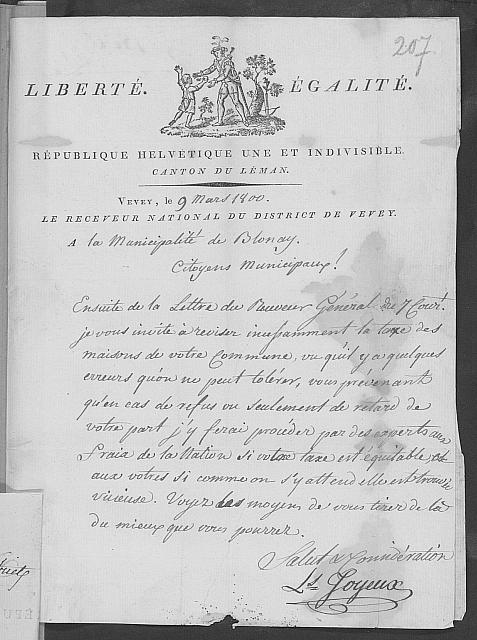 207
LIBERTÉ. ÉGALITÉ.
RÉPUBLIQUE HELVÉTIQUE UNE ET INDIVISIBLE.
CANTON DU LÉMAN.
VEVEY, le 9 Mars 1800.
LE RECEVEUR NATIONAL DU DISTRICT DE VEVEY.
A la Municipalité de Blonay.
Citoyens Municipaux!
Ensuite de la Lettre du Receveur Général du 7 Cour.t
je vous invite à reviser incessamment la taxe des
maisons de votre Commune, vu qu'il y a quelques
erreurs qu'on ne peut tolérer, vous prévenant
qu'en cas de refus ou seulement de retard de
votre part j'y ferai procéder par des experts aux
fraix de la Nation si votre taxe est équitable et
aux votres si comme on s'y attend elle est trouvée
vicieuse. Voyez les moyens de vous tirer de là
du mieux que vous pourrez.
Salut & Considération
Ls Joyeux